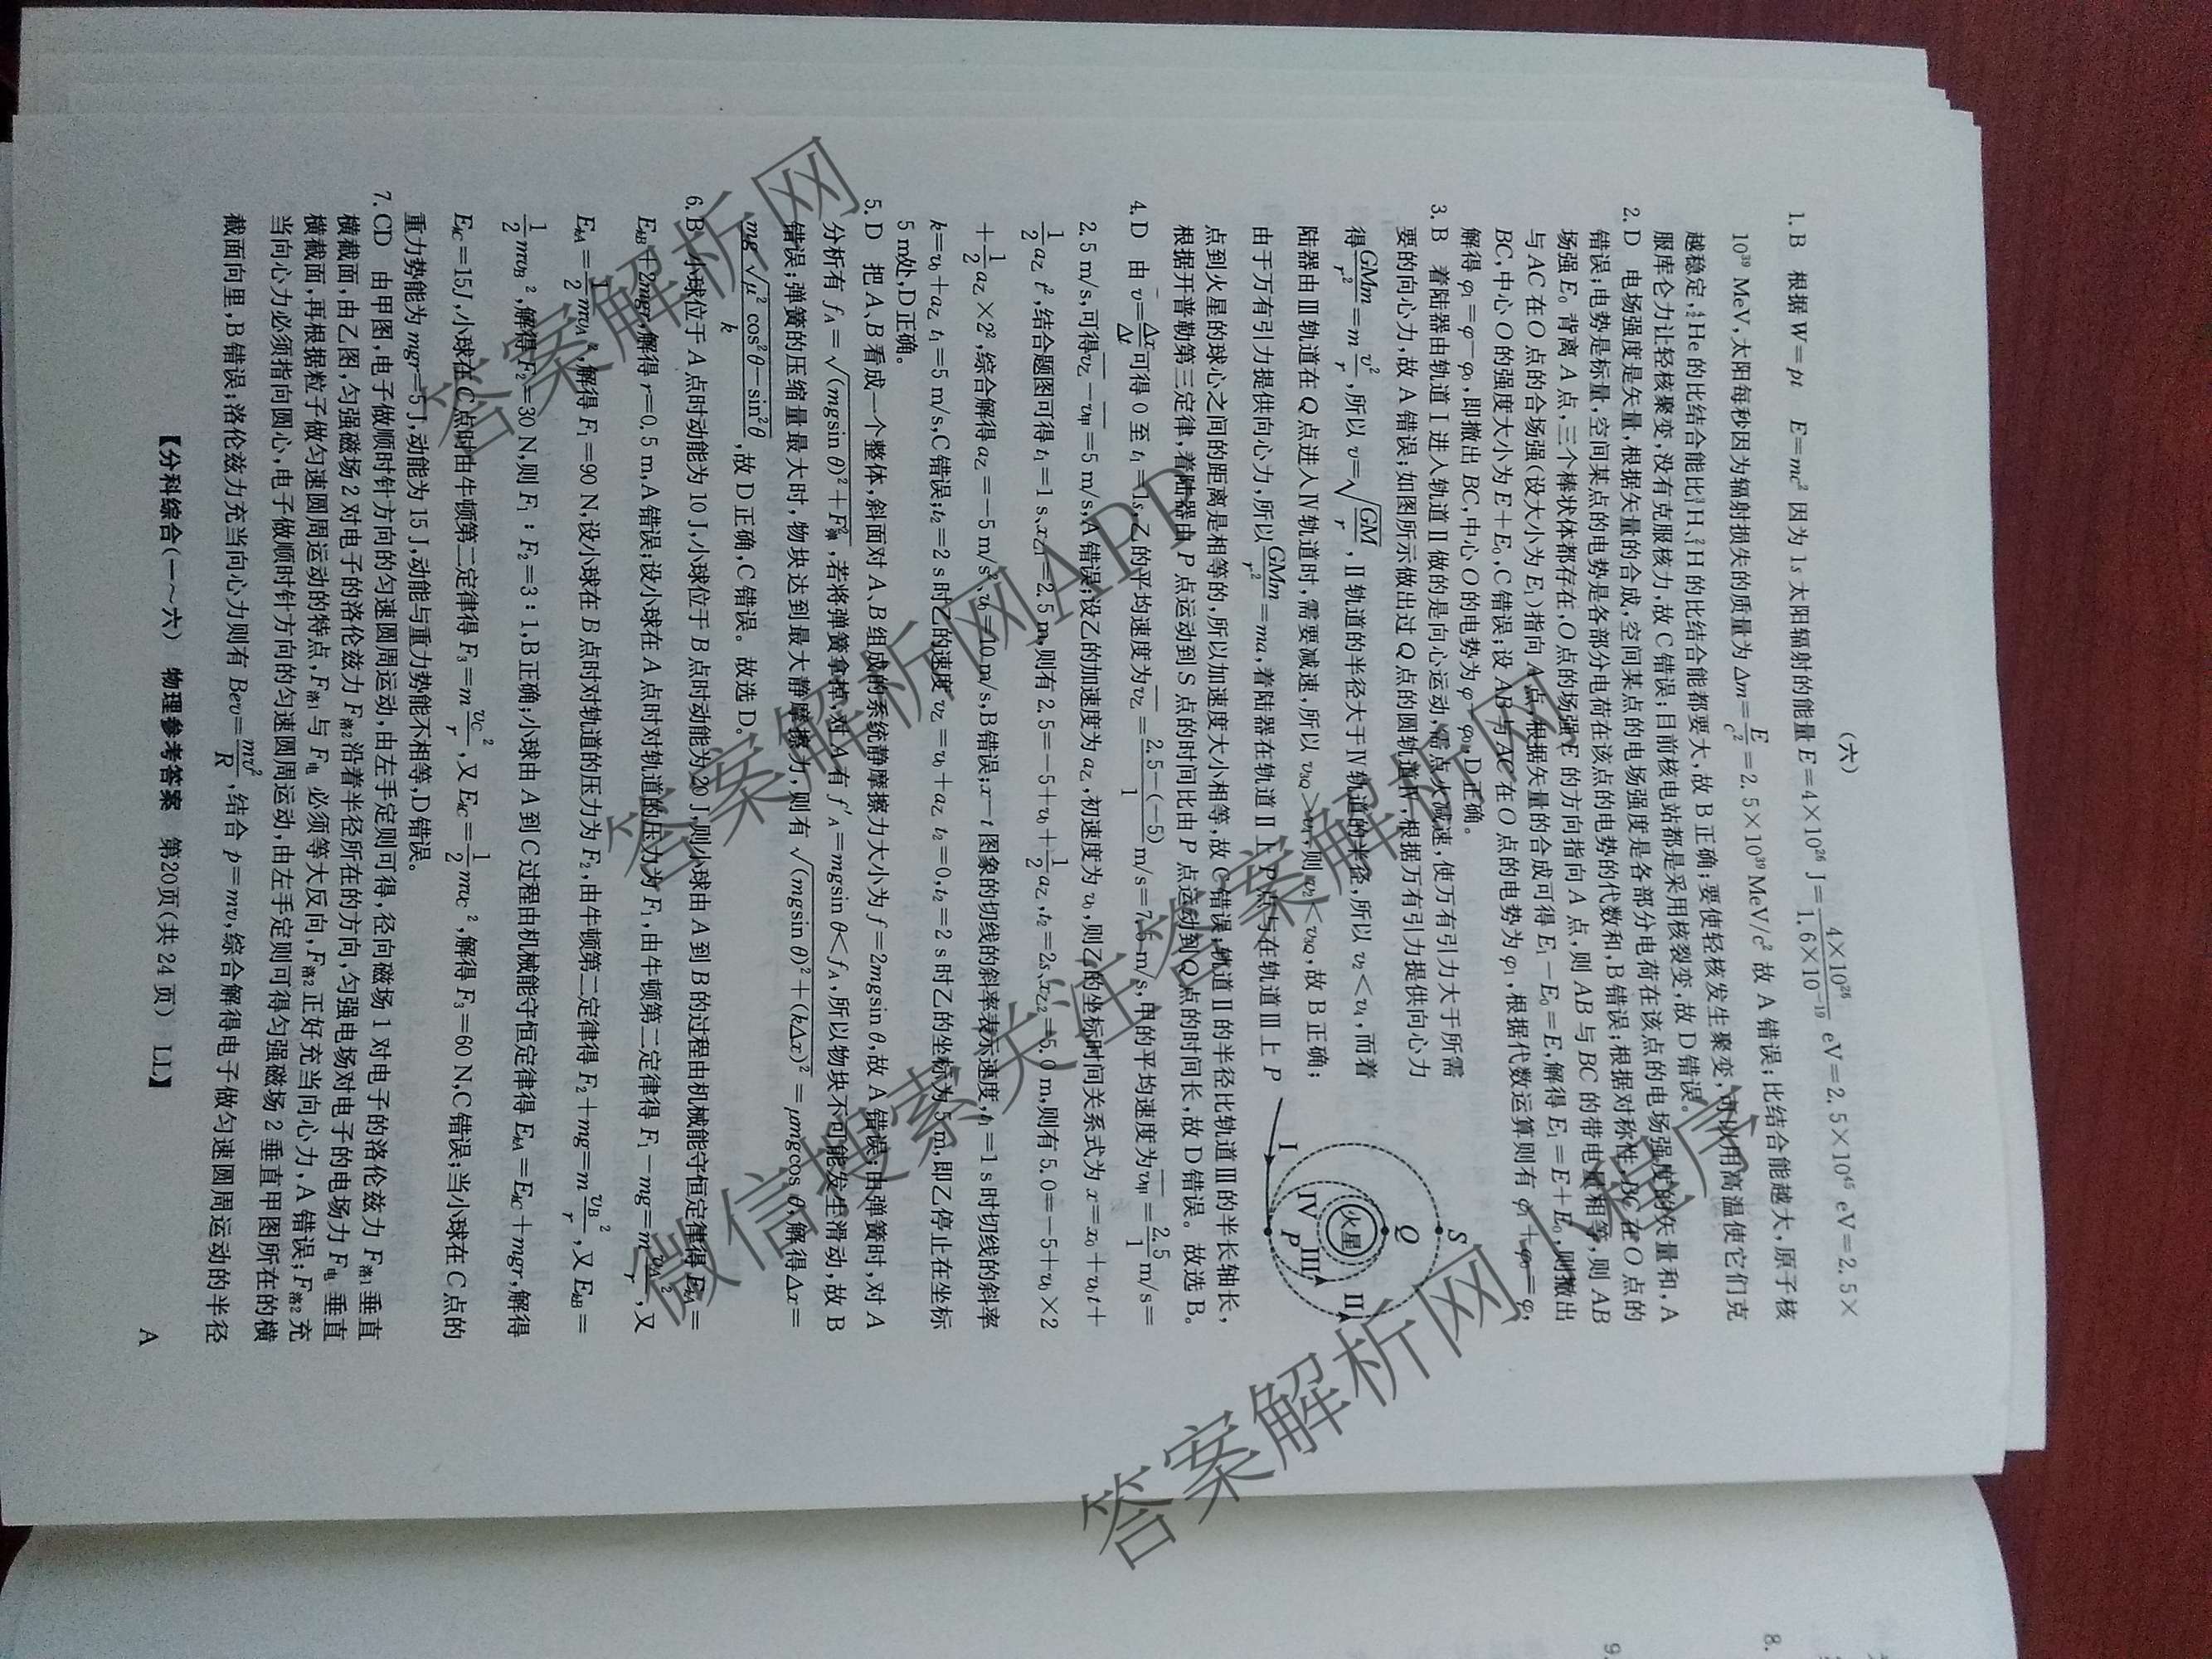 (六)
1. B 根据 W=pt E=mc² 因为 1s 太阳辐射的能量 E=4×10²⁶ J=4×10²⁶/1.6×10⁻¹⁹ eV=2.5×10⁴⁵ eV=2.5×
10³⁹ MeV,太阳每秒因为辐射损失的质量为 Δm=E/c²=2.5×10³⁹MeV/c² 故 A 错误;比结合能越大,原子核
越稳定,⁴₂He 的比结合能比³₁H、²₁H 的比结合能都要大,故 B 正确;要使轻核发生聚变,可以用高温使它们克
服库仑力让轻核聚变,没有克服核力,故 C 错误;目前核电站都是采用核裂变,故 D 错误。
2. D 电场强度是矢量,根据矢量的合成,空间某点的电场强度是各部分电荷在该点的电场强度的矢量和,A
错误;电势是标量,空间某点的电势是各部分电荷在该点的电势的代数和,B 错误;根据对称性 BC 在 O 点的
场强 E₀ 背离 A 点,三个棒状体都存在,O 点的场强 E 的方向指向 A 点,则 AB 与 BC 的带电量相等,则 AB
与 AC 在 O 点的合场强(设大小为 E₁)指向 A 点,根据矢量的合成可得 E₁-E₀=E,解得 E₁=E+E₀,则撤出
BC,中心 O 的强度大小为 E+E₀,C 错误;设 AB 与 AC 在 O 点的电势为 φ₁,根据代数运算则有 φ₁+φ₀=φ,
解得 φ₁=φ-φ₀,即撤出 BC,中心 O 的电势为 φ-φ₀,D正确。
3. B 着陆器由轨道 Ⅰ 进入轨道 Ⅱ 做的是向心运动,需点火减速,使万有引力大于所需
要的向心力,故 A 错误;如图所示做出过 Q 点的圆轨道Ⅳ,根据万有引力提供向心力
得GMm/r²=m v²/r,所以 v=√(GM/r),Ⅱ轨道的半径大于Ⅳ轨道的半径,所以 v₂<v₄,而着
陆器由Ⅲ轨道在 Q 点进入Ⅳ轨道时,需要减速,所以 v₃Q>v₄,则 v₂<v₃Q,故 B 正确;
由于万有引力提供向心力,所以GMm/r²=ma,着陆器在轨道 Ⅱ 上 P 点与在轨道Ⅲ上 P
点到火星的球心之间的距离是相等的,所以加速度大小相等,故 C 错误;轨道 Ⅱ 的半径比轨道Ⅲ的半长轴长,
根据开普勒第三定律,着陆器由 P 点运动到 S 点的时间比由 P 点运动到 Q 点的时间长,故 D 错误。故选 B。
S
Q
火星
Ⅳ
Ⅲ
Ⅰ
P
Ⅱ
4. D 由 v̄=Δx/Δt可得 0 至 t₁=1s,乙的平均速度为v̄乙=2.5-(-5)/1 m/s=7.5 m/s,甲的平均速度为v̄甲=2.5/1 m/s=
2.5 m/s,可得v̄乙-v̄甲=5 m/s,A 错误;设乙的加速度为 a乙,初速度为 v₀,则乙的坐标时间关系式为 x=x₀+v₀t+
1/2 a乙 t²,结合题图可得 t₁=1 s、x乙1=2.5 m,则有 2.5=-5+v₀+1/2 a乙,t₂=2s、x乙2=5.0 m,则有 5.0=-5+v₀×2
+1/2 a乙×2²,综合解得 a乙=-5 m/s²、v₀=10 m/s,B 错误;x-t 图象的切线的斜率表示速度,t₁=1 s 时切线的斜率
k=v₀+a乙 t₁=5 m/s,C 错误;t₂=2 s 时乙的速度 v乙=v₀+a乙 t₂=0,t₂=2 s 时乙的坐标为 5 m,即乙停止在坐标
5 m处,D 正确。
5. D 把 A、B 看成一个整体,斜面对 A、B 组成的系统静摩擦力大小为 f=2mgsin θ,故 A 错误;由弹簧时,对 A
分析有 fA=√((mgsin θ)²+F弹²),若将弹簧拿掉,对 A 有 f′A=mgsin θ<fA,所以物块不可能发生滑动,故 B
错误;弹簧的压缩量最大时,物块达到最大静摩擦力,则有 √((mgsin θ)²+(kΔx)²)=μmgcos θ,解得 Δx=
mg√(μ²cos²θ-sin²θ)/k,故 D 正确,C 错误。故选 D。
6. B 小球位于 A 点时动能为 10 J,小球位于 B 点时动能为 20 J,则小球由 A 到 B 的过程由机械能守恒定律得 EkA=
EkB+2mgr,解得 r=0.5 m,A 错误;设小球在 A 点时对轨道的压力为 F₁,由牛顿第二定律得 F₁-mg=m vA²/r,又
EkA=1/2 mvA²,解得 F₁=90 N,设小球在 B 点时对轨道的压力为 F₂,由牛顿第二定律得 F₂+mg=m vB²/r,又 EkB=
1/2 mvB²,解得 F₂=30 N,则 F₁:F₂=3:1,B 正确;小球由 A 到 C 过程由机械能守恒定律得 EkA=EkC+mgr,解得
EkC=15J,小球在 C 点时由牛顿第二定律得 F₃=m vC²/r,又 EkC=1/2 mvC²,解得 F₃=60 N,C 错误;当小球在 C 点的
重力势能为 mgr=5 J,动能为 15 J,动能与重力势能不相等,D 错误。
7. CD 由甲图,电子做顺时针方向的匀速圆周运动,由左手定则可得,径向磁场 1 对电子的洛伦兹力 F洛1 垂直
横截面,由乙图,匀强磁场 2 对电子的洛伦兹力 F洛2 沿着半径所在的方向,匀强电场对电子的电场力 F电 垂直
横截面,再根据粒子做匀速圆周运动的特点,F洛1 与 F电 必须等大反向,F洛2 正好充当向心力,A 错误;F洛2 充
当向心力必须指向圆心,电子做顺时针方向的匀速圆周运动,由左手定则可得匀强磁场 2 垂直甲图所在的横
截面向里,B 错误;洛伦兹力充当向心力则有 Bev=mv²/R,结合 p=mv,综合解得电子做匀速圆周运动的半径
【分科综合(一~六) 物理参考答案 第20页(共 24 页) LL】
A
8.
9.
答案解析网
答案解析网API
微信搜索关注答案解析网
答案解析网